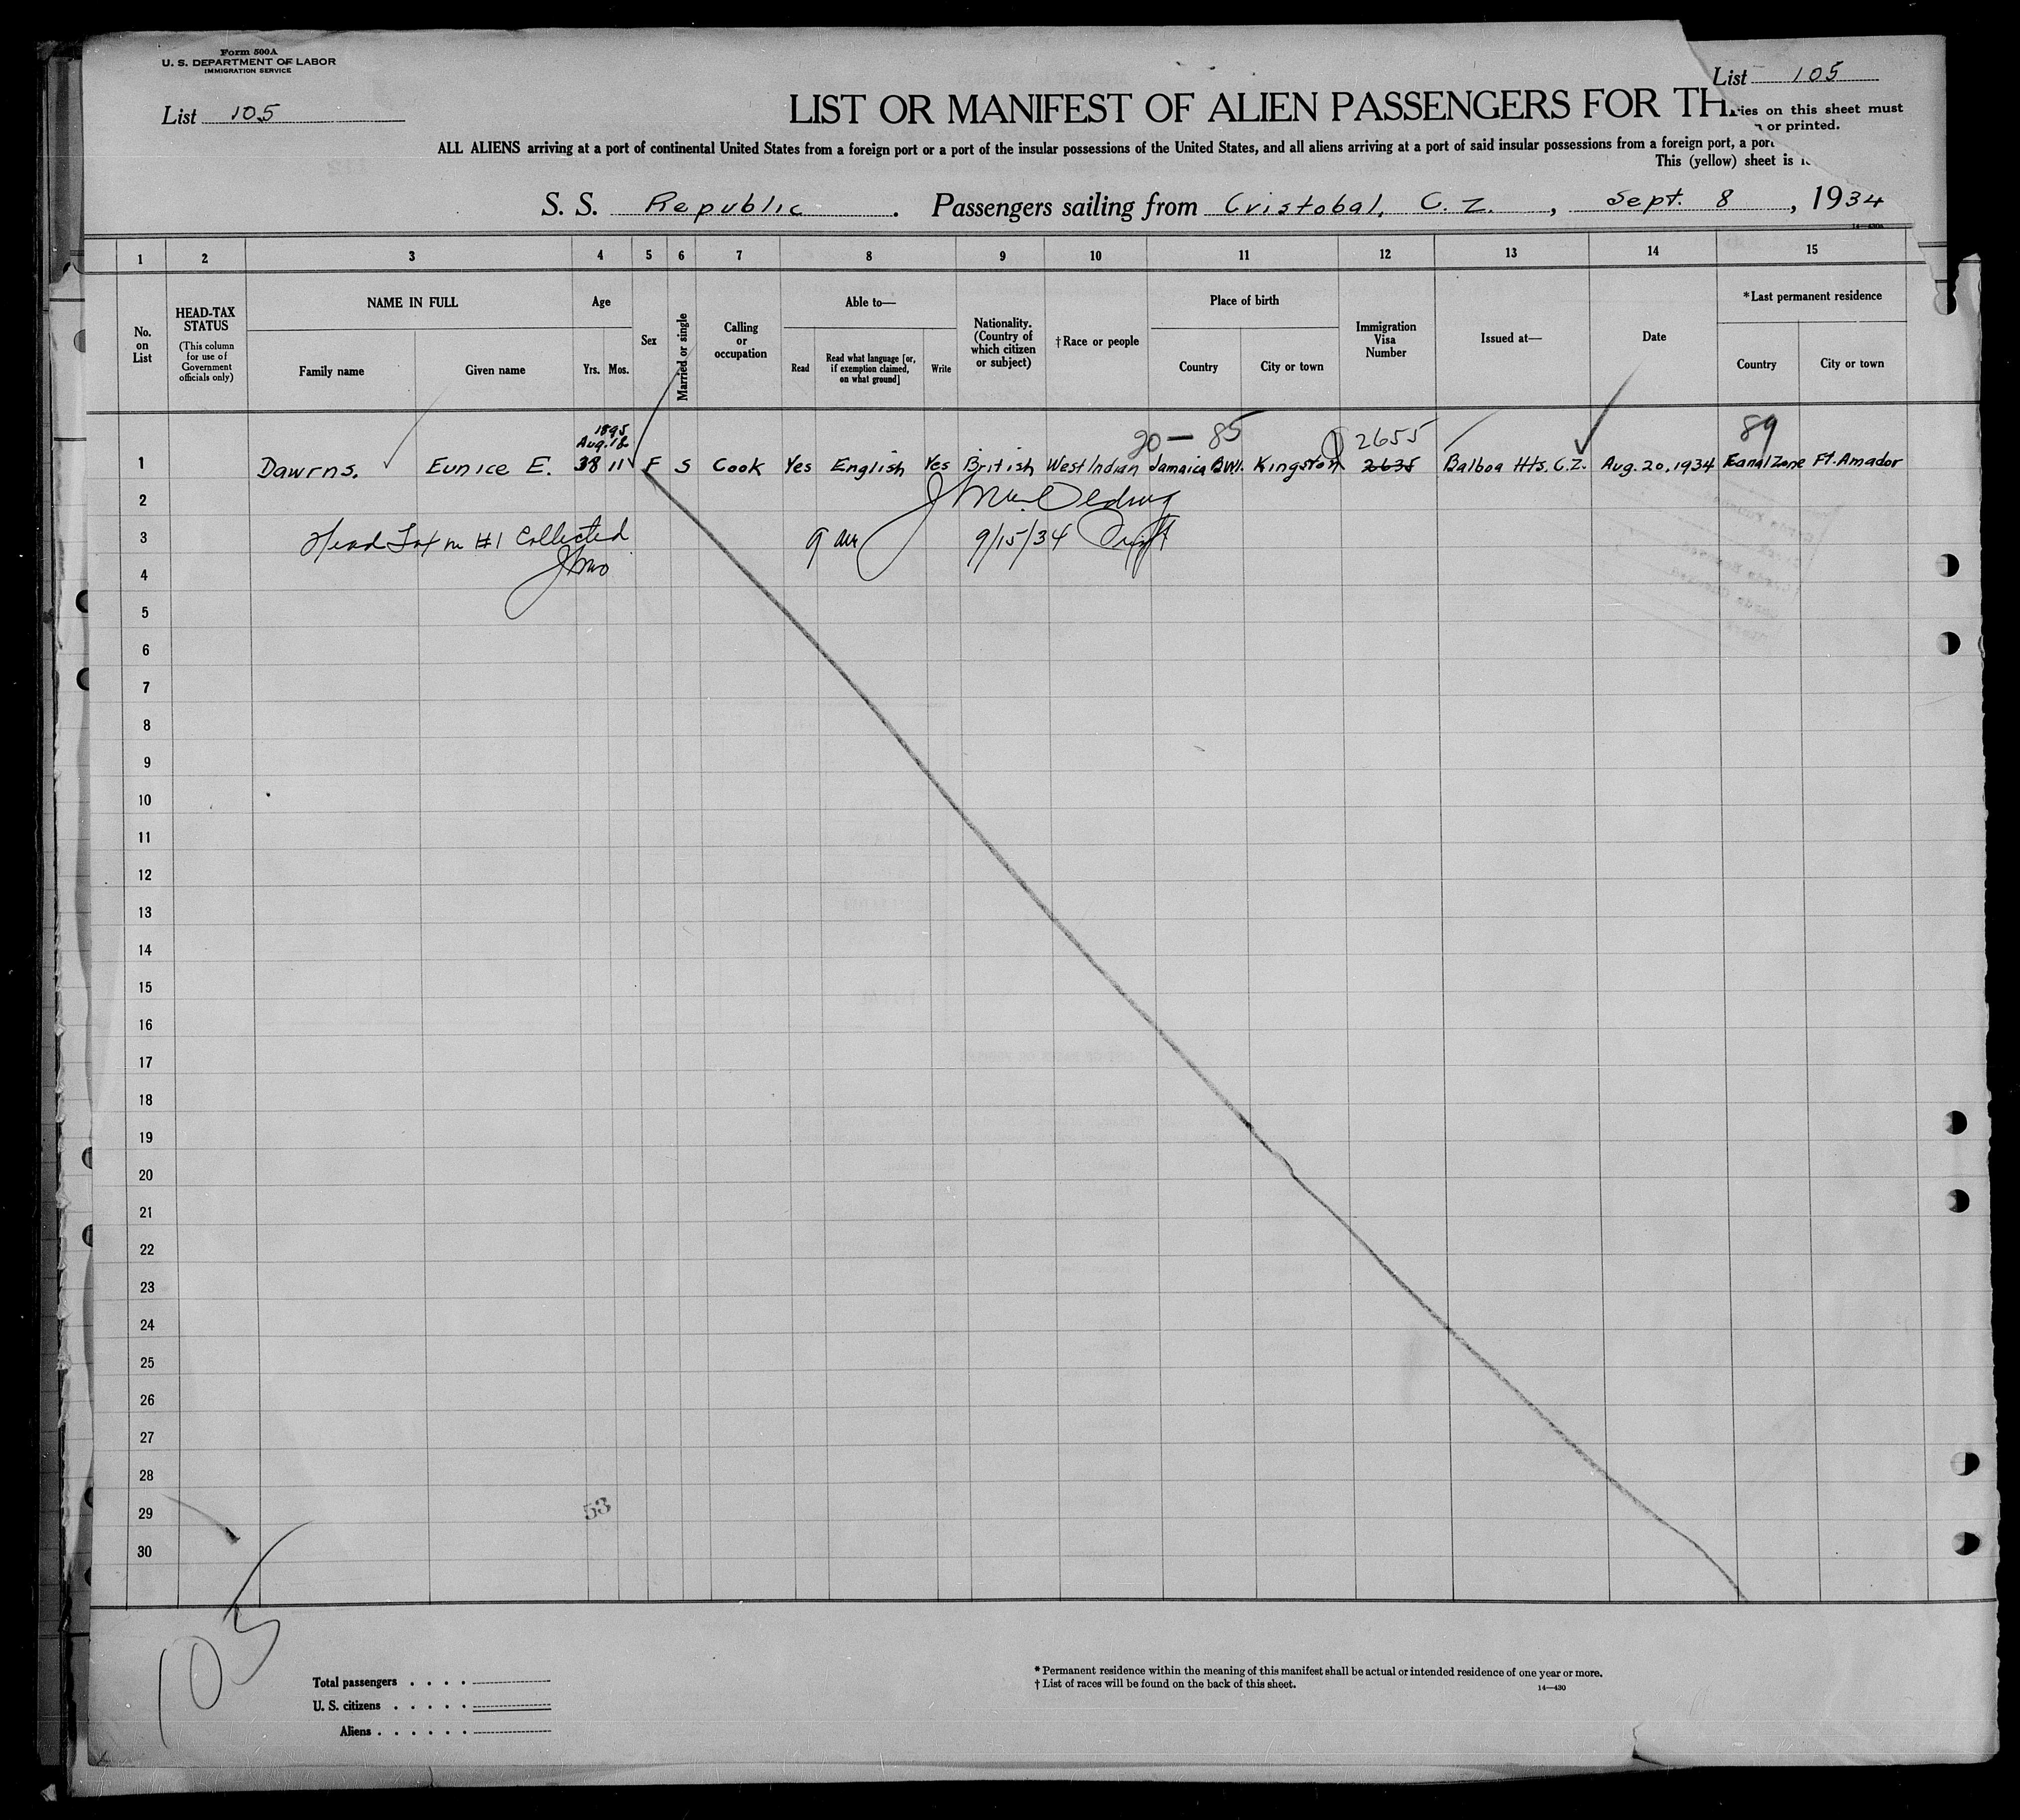 Form 500A
U. S. DEPARTMENT OF LABOR
IMMIGRATION SERVICE
List 105
List 105
LIST OR MANIFEST OF ALIEN PASSENGERS FOR TH
ies on this sheet must
or printed.
ALL ALIENS arriving at a port of continental United States from a foreign port or a port of the insular possessions of the United States, and all aliens arriving at a port of said insular possessions from a foreign port, a port
This (yellow) sheet is
S. S. Republic . Passengers sailing from Cristobal, C. Z. , Sept. 8 , 1934
1 2 3 4 5 6 7 8 9 10 11 12 13 14 15
No. on List
HEAD-TAX STATUS
(This column for use of Government officials only)
NAME IN FULL
Family name Given name
Age
Yrs. Mos.
Sex
Married or single
Calling or occupation
Able to—
Read Read what language [or, if exemption claimed, on what ground] Write
Nationality. (Country of which citizen or subject)
†Race or people
Place of birth
Country City or town
Immigration Visa Number
Issued at—
Date
*Last permanent residence
Country City or town
1895
Aug. 18
20 — 85 2655 89
1 Dawrns. Eunice E. 38 11 F S Cook Yes English Yes British West Indian Jamaica B.W.I. Kingston 2635 Balboa Hts. C.Z. Aug. 20, 1934 Canal Zone Ft. Amador
2
3 Head Tax on #1 Collected 9 am 9/15/34
4
5
6
7
8
9
10
11
12
13
14
15
16
17
18
19
20
21
22
23
24
25
26
27
28
29 53
30
105
Total passengers . . . .
U. S. citizens . . . . .
Aliens . . . . . .
* Permanent residence within the meaning of this manifest shall be actual or intended residence of one year or more.
† List of races will be found on the back of this sheet.
14—430